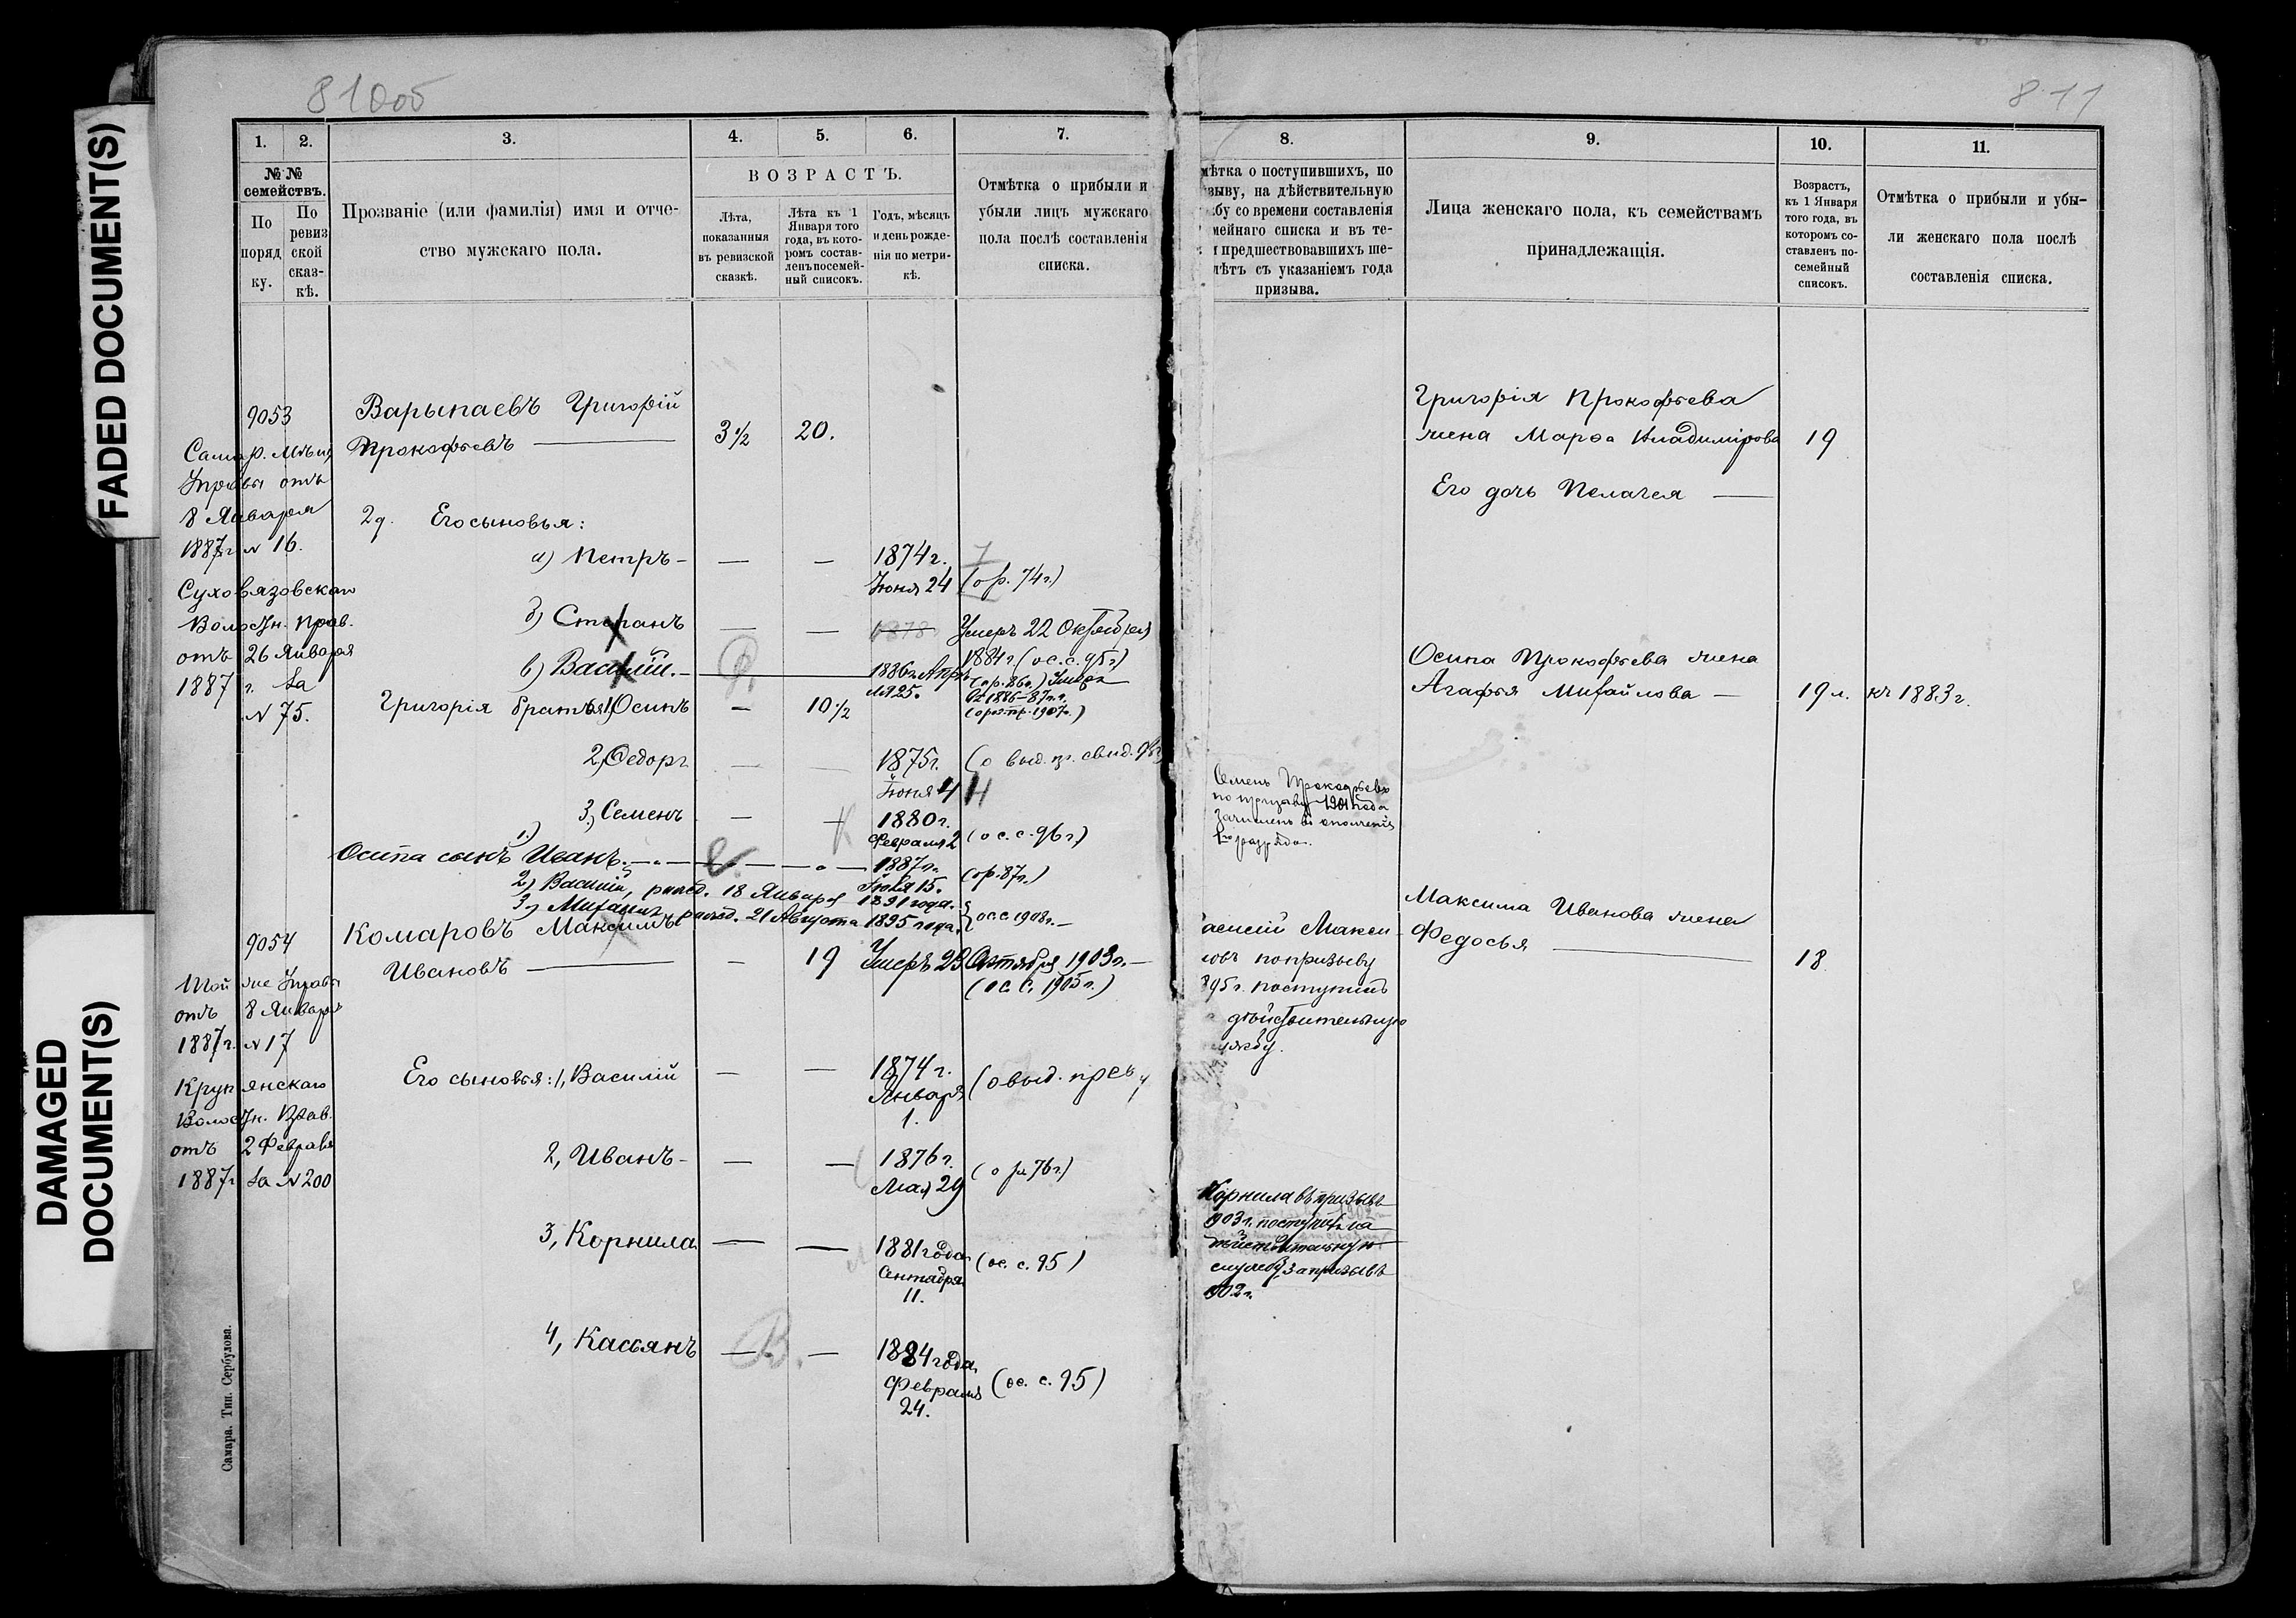 FADED DOCUMENT(S)
DAMAGED
DOCUMENT(S)
810об
1. 2. 3. 4. 5. 6. 7.
№ №
семействъ.
По
поряд
ку.
По
ревиз
ской
сказ-
кѣ.
Прозваніе (или фамилія) имя и отче-
ство мужскаго пола.
ВОЗРАСТЪ.
Лѣта,
показанныя
въ ревизской
сказкѣ.
Лѣта къ 1
Января того
года, въ кото-
ромъ состав-
ленъ посемей-
ный списокъ.
Годъ, мѣсяцъ
и день рожде-
нія по метри-
кѣ.
Отмѣтка о прибыли и
убыли лицъ мужскаго
пола послѣ составленія
списка.
9053
Самар. Мѣщ.
Управы отъ
8 Января
1887 г. № 16.
Суховязовскаго
Волостн. Прав.
отъ 26 Января
1887 г. за
№ 75.
Варыпаевъ Григорій
Прокофьевъ — 3½ 20.
2д. Его сыновья:
а) Петръ - — — 1874 г.
Іюня 24 (о р. 74 г.)
б) Степанъ — — 1878 Умеръ 22 Октября
1884 г. (ос. с. 95 г.)
в) Василій. - 1886 г. Апрѣ
ля 25. (о р. 86 г.) Умеръ
1886-87 г.
1907 г.)
Григорія братья: 1, Осипъ — 10½
2, Федоръ — — 1875 г.
Іюня 4 (о выд. пр. свид. 96 г.)
3, Семенъ — — 1880 г.
Февраля 2 (ос. с. 96 г.)
Осипа сынъ 1.) Иванъ. — 1887 г.
Іюля 15. (о р. 87 г.)
2) Василій, рожд. 18 Января 1891 года.
3) Михаилъ, рожд. 21 Августа 1895 года. ос. с 1908 г. —
9054
Той же Управы
отъ 8 Января
1887 г. № 17
Крупянскаго
Волостн. Прав.
отъ 2 Февраля
1887 г. за № 200
Комаровъ Максимъ
Ивановъ — — 19 Умеръ 23 Октября 1903 г. —
(ос. с. 1905 г.)
Его сыновья: 1, Василій — — 1874 г.
Января
1. (о выд.
2, Иванъ - — — 1876 г.
Мая 29 (о р. 76 г.)
3, Корнила — — 1881 года
Сентября
11. (ос. с. 95)
4, Касьянъ — — 1884 года
Февраля
24. (ос. с. 95)
Самара. Тип. Сербулова.
811
8. 9. 10. 11.
мѣтка о поступившихъ, по
зыву, на дѣйствительную
бу со времени составленія
мейнаго списка и въ те-
и предшествовавшихъ ше-
лѣтъ съ указаніемъ года
призыва.
Лица женскаго пола, къ семействамъ
принадлежащія.
Возрастъ,
къ 1 Января
того года, въ
которомъ со-
ставленъ по-
семейный
списокъ.
Отмѣтка о прибыли и убы-
ли женскаго пола послѣ
составленія списка.
Григорія Прокофьева
жена Марѳа Владимірова 19
Его дочь Пелагея —
Осипа Прокофьева жена
Агафья Михайлова — 19 л. къ 1883 г.
Семенъ Прокофьевъ
по призыву 1901 года
зачисленъ въ ополченіе
1го разряда.
Максима Иванова жена
Федосья — 18
асилій Макси
овъ по призыву
895 г. поступилъ
дѣйствительную
ужбу.
Корнила въ призывъ
903 г. поступилъ на
дѣйствительную
службу, за призывъ
902 г.